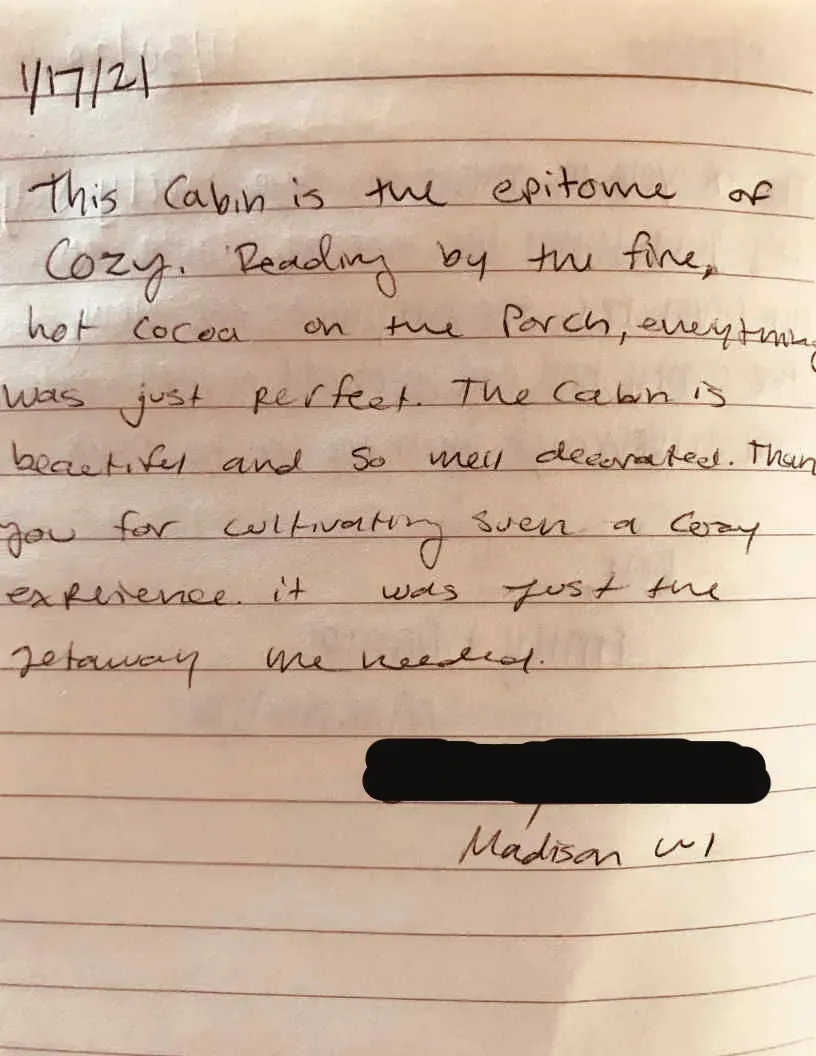 1/17/21
This Cabin is the epitome of
Cozy. Reading by the fire,
hot cocoa on the Porch, everything
was just perfect. The Cabin is
beautiful and so well decorated. Than
you for cultivating such a Cozy
experience. it was just the
getaway we needed.
Madison WI